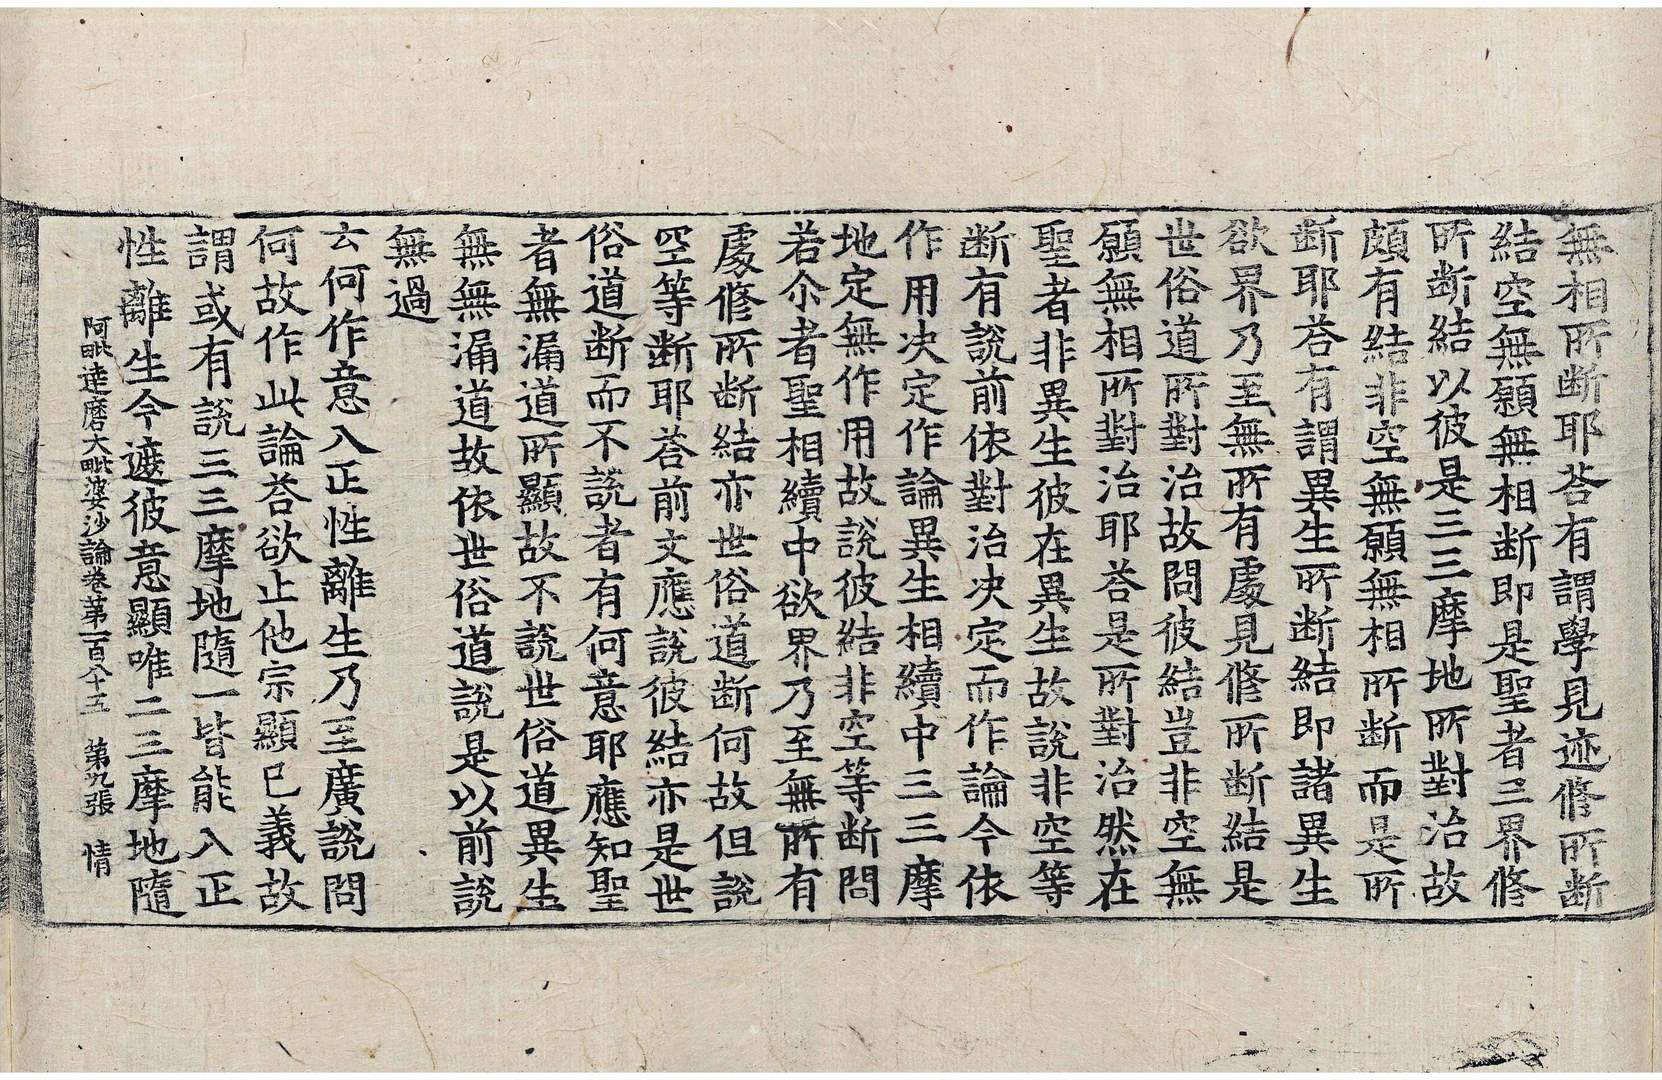 無相所断耶荅有謂學見迹修所断
結空無願無相断即是聖者三界修
所断結以彼是三三摩地所對治故
頗有結非空無願無相所断而是所
断耶荅有謂異生所断結即諸異生
欲界乃至無所有處見修所断結是
世俗道所對治故問彼結豈非空無
願無相所對治耶荅是所對治然在
聖者非異生彼在異生故說非空等
断有說前依對治决定而作論今依
作用决定作論異生相續中三三摩
地定無作用故說彼結非空等断問
若尒者聖相續中欲界乃至無所有
處修所断結亦世俗道断何故但說
空等断耶荅前文應說彼結亦是世
俗道断而不說者有何意耶應知聖
者無漏道所顯故不說世俗道異生
無無漏道故依世俗道說是以前說
無過
云何作意入正性離生乃至廣說問
何故作此論荅欲止他宗顯已義故
謂或有說三三摩地隨一皆能入正
性離生今遮彼意顯唯二三摩地隨
阿毗達磨大毗婆沙論卷第一百八十五 第九張 情